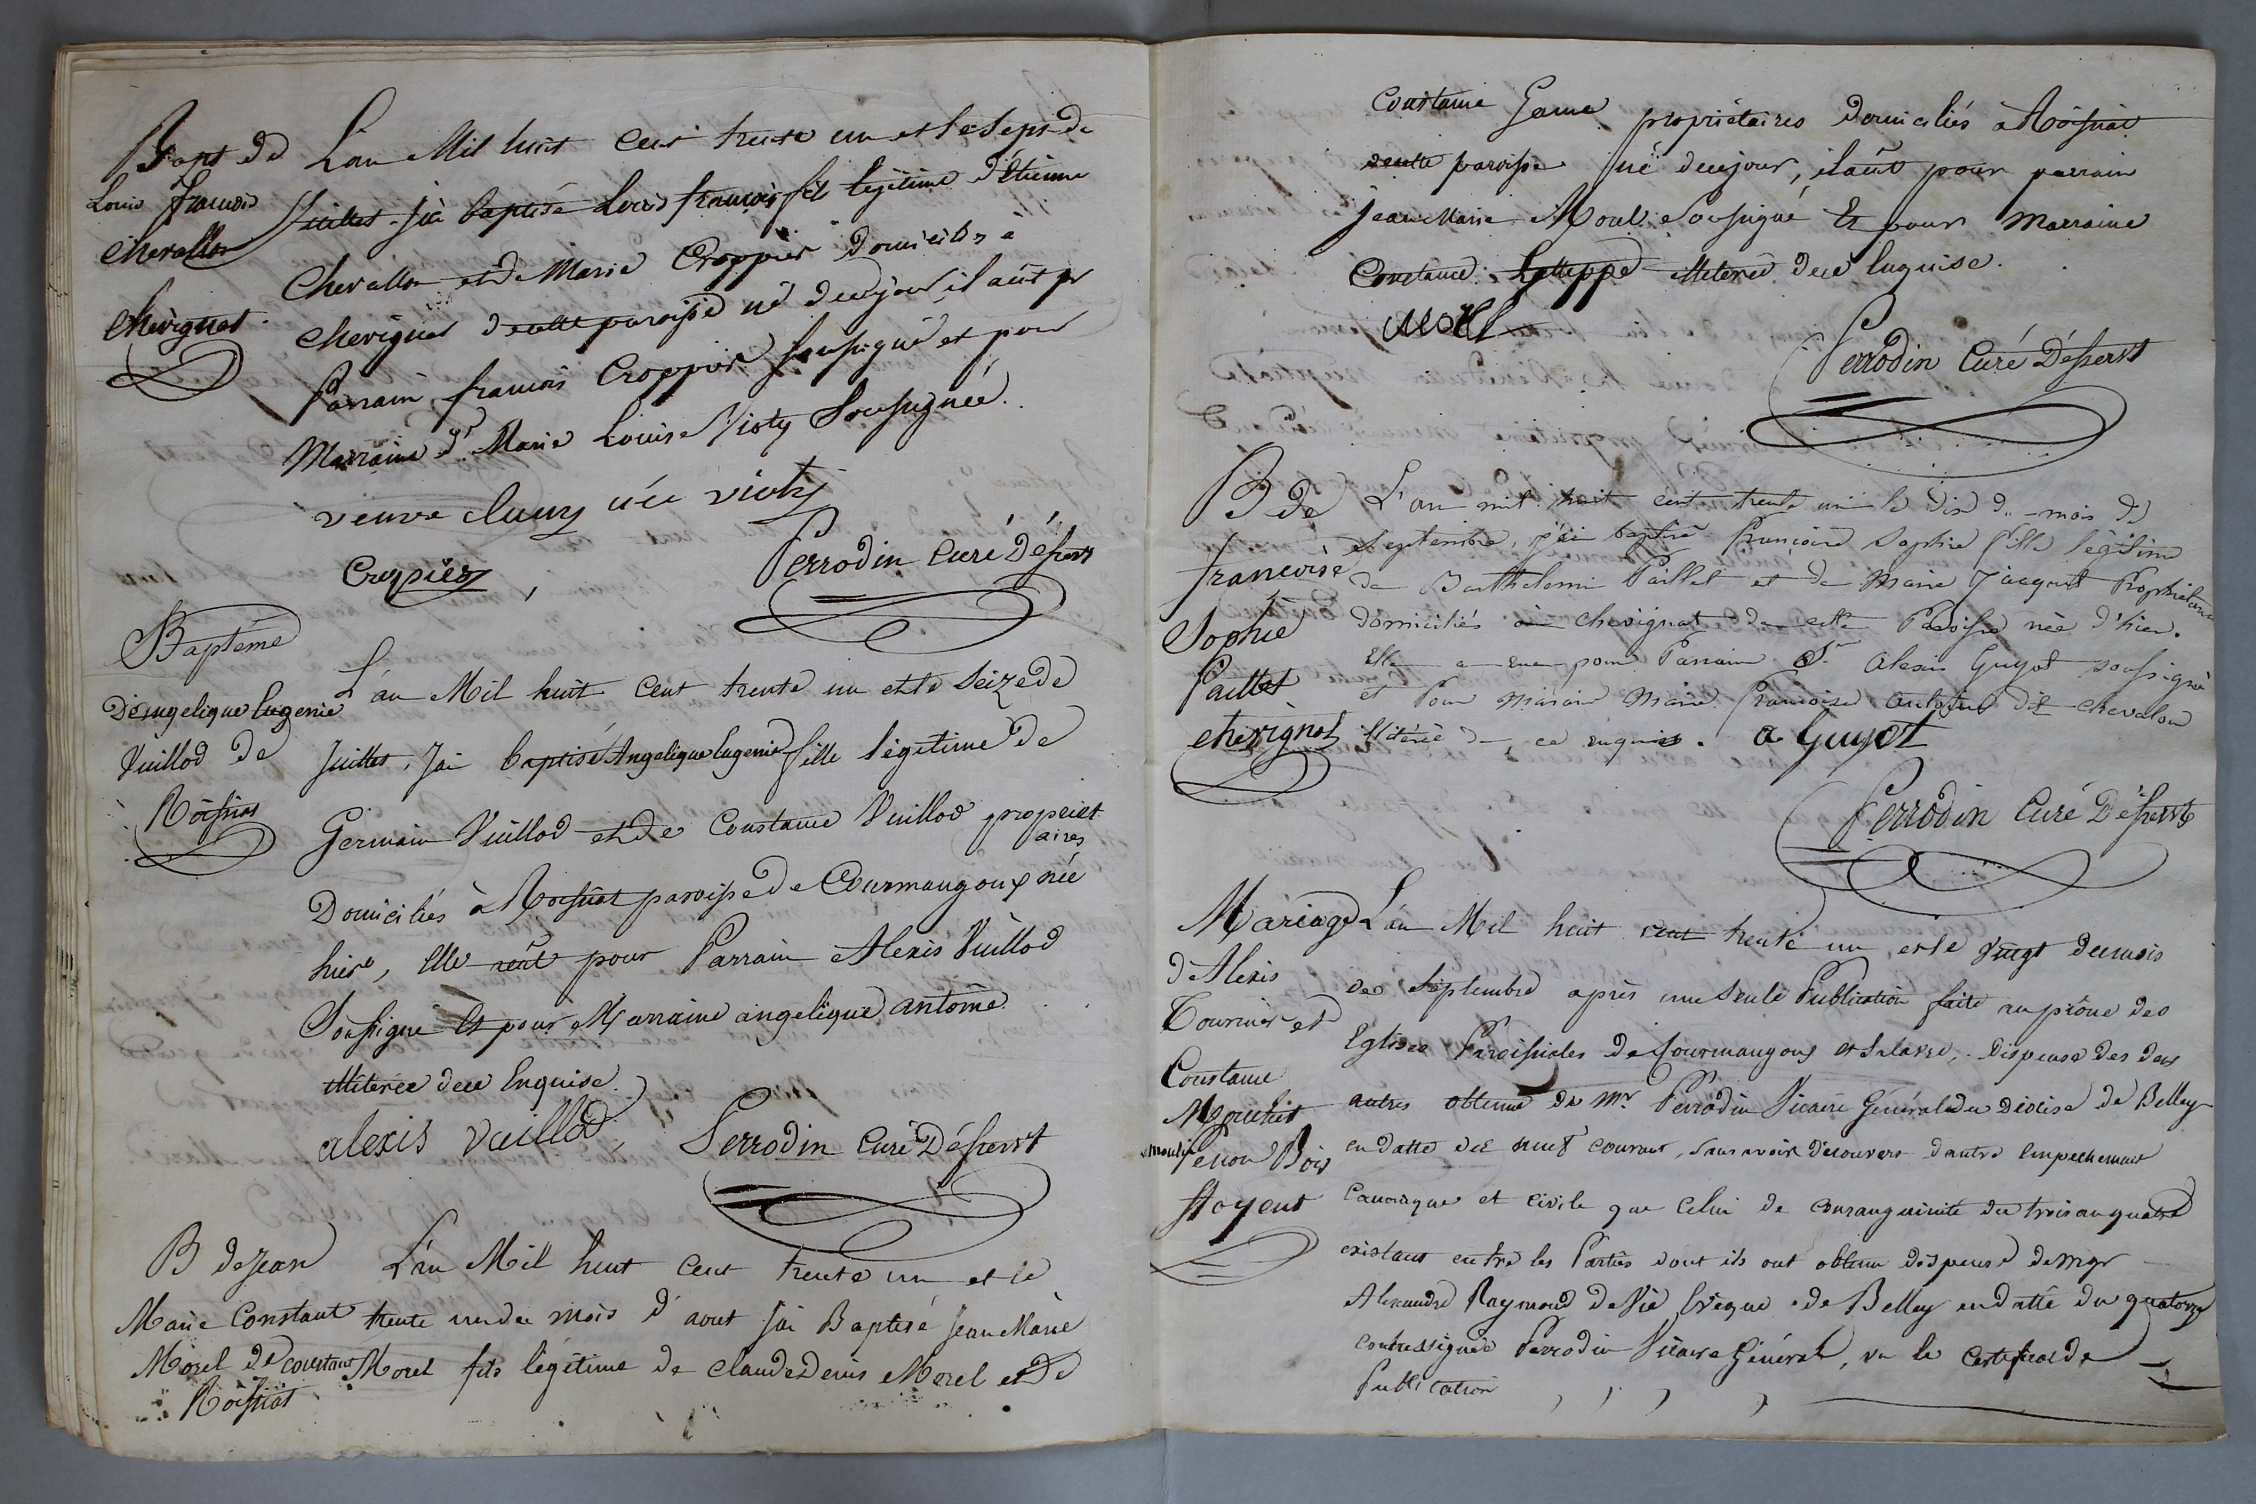 Bapt de
Louis francois
Chevallon
Chevignat
L'an Mil huit Cent trente un et le Sept de
Juillet. J'ai baptisé Louis francois fils legitime d'Etienne
Chevallon et de Marie Croppier Domiciliés à
Chevignat de cette paroisse né de ce jour, il a eut pr
Parrain francois Croppier Soussigné et pour
Marraine de Marie Louise Violy Soussignée.
veuve cluny née violy
Croppier
Perrodin Curé Déssert
Baptême
D'Angelique Eugenie
Vuillod de
Roissiat
L'an Mil huit Cent trente un et le Seize de
Juillet, J'ai baptisé Angelique Eugenie fille légitime de
Germain Vuillod et de Constance Vuillod propriet
aires
Domiciliés à Roissiat paroisse de Courmangoux née
hière, Elle a eut pour Parrain Alexis Vuillod
Soussigne Et pour Marraine angelique antoine
illiterée de ce Enquise.
alexis Vuillod
Perrodin Curé Déssert
B de Jean
Marie Constant
Morel de
Roissiat
L'an Mil huit Cent trente un et le
trente un du mois d'aout J'ai Baptisé Jean Marie
constant Morel fils légitime de Claude Denis Morel et de
Constance Game propriétaires domiciliés à Roissiat
de cette paroisse né de ce jour, il a eût pour parrain
Jean Marie Morel Soussigné Et pour Marraine
Constance illiterée de ce Enquise.
Morel
Perrodin Curé Déssert
B de
francoise
Sophie
Paillet
chevignat
L'an mil huit cent trente un le dix du mois de
Septembre, j'ai baptisé francoise Sophie fille légitime
de Barthelemi Paillet et de Marie Jacquet Propriétaires
domiciliés à chevignat de cette Paroisse née d'hier.
Elle a eue pour Parrain Sr. Alexis Guyot soussigné
et Pour Maraine Marie Francoise dit chevalon
illitérée de ce enquise. a Guyot
Perrodin Curé Déssert
Mariage
d'Alexis
Tournier et
Constance
moulin
Penon Bois
L'an Mil huit cent trente un, et le vingt du mois
de Septembre après une Seule Publication faite au prône des
Eglises Paroissiales de Courmangoux et Salavre, Dispense des deux
autres obtenue de Mr. Perrodin Vicaire Général du Diocèse de Belley
en datte du neuf courant, Sans avoir découvert d'autre Empechement
Canonique et civile que Celui de Consanguinité du trois au quatre
existant entre les Parties dont ils ont obtenu dispense de Mgr
Alexandre Raymond de Vie Evêque de Belley en datte du quatorze
contressignée Perrodin Vicaire Général, vu le Certificat de
Publication